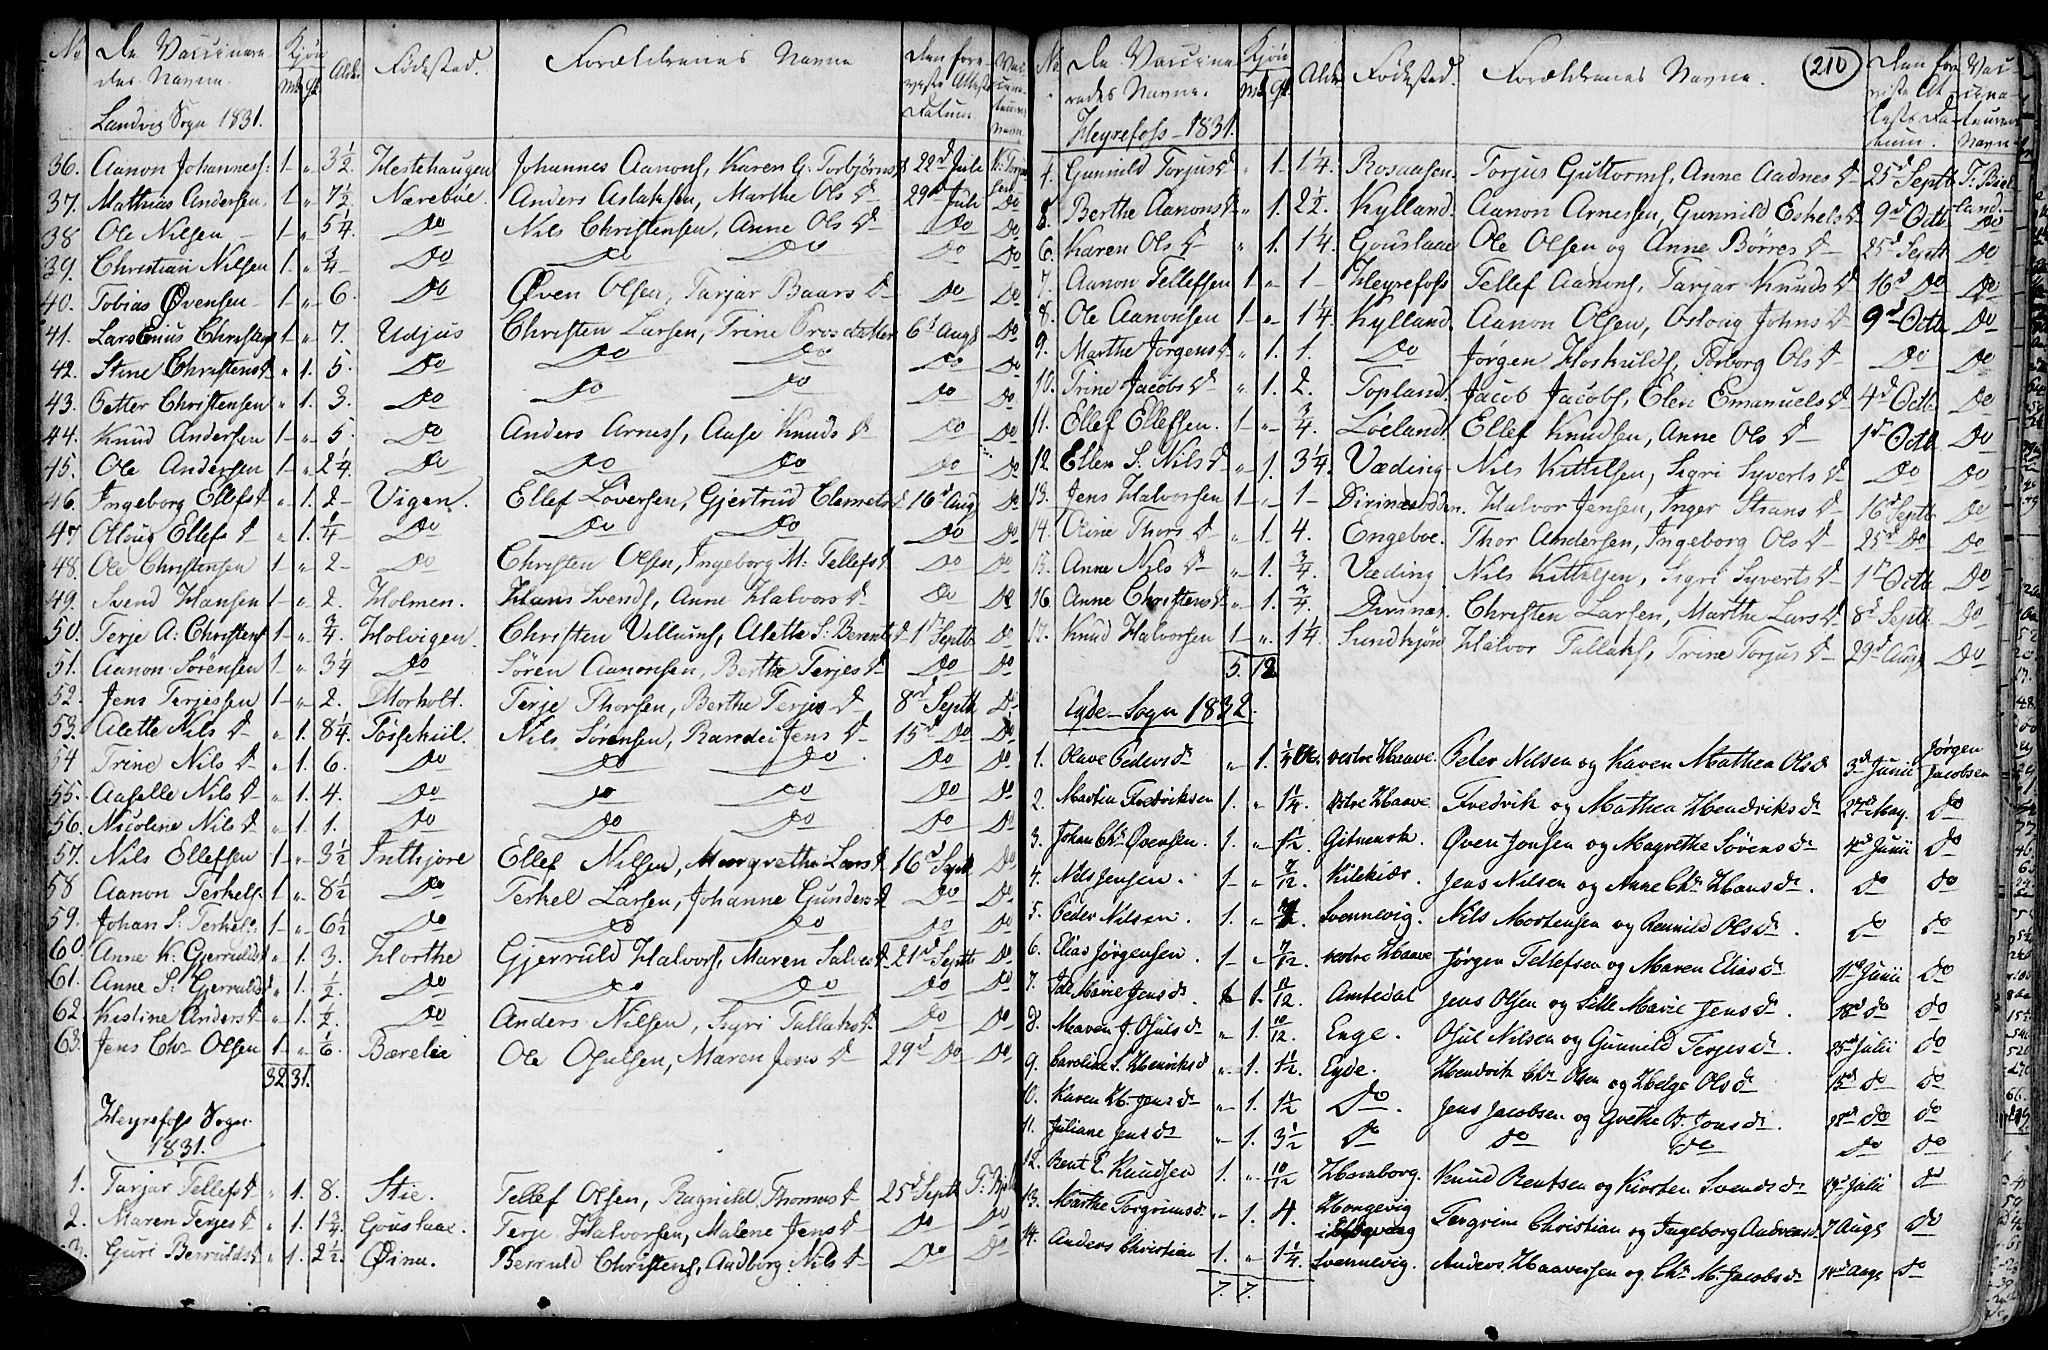 No De Vaccinere- Kjøn Alder Fødested. Forældrenes Navne Den fore- Vac-
des Navne. Mk Qk viste Attests cina-
Landvig Sogn 1831. Datum teurens Navn
36. Aanon Johanness: 1 " 3½ Hestehaugen Johannes Aanons, Karen G. Torbjørns D 22d Juli
37. Mathias Andersen 1 " 7½ Nærebøe. Anders Aslaksen, Marthe Ols D 29d Juli Do
38 Ole Nilsen 1 " 5¼ Do Nils Christensen, Anne Ols D Do Do
39. Christian Nilsen 1 " ¾ Do Do Do Do Do
40. Tobias Øvensen 1 " 6. Do Øven Olsen, Tarjar Baars D Do Do
41. Lars Christens 1 " 7. Udjus Christen Larsen, Trine 6d Augs Do
42. Stine Christens D " 1 5. Do Do Do Do Do
43. Petter Christensen " 1. 3. Do Do Do Do Do
44. Knud Andersen 1 " 5. Do Anders Arness, Aase Knuds D Do Do
45. Ole Andersen 1 " 2¼ Do Do Do Do Do
46. Ingeborg Ellefs D " 1. 2 Vigen. Ellef Løversen, Gjertrud Clemets D 16d Augs Do
47 Ellefs D " 1. ¼ Do Do Do Do Do
48. Ole Christensen 1 " 2 Do Christen Olsen, Ingeborg M: Tellefs D Do Do
49. Svend Hansen 1 " 2. Holmen. Hans Svends, Anne Halvors D Do Do
50. Terje A: Christens 1 " ¾ Holvigen. Christen Villums, Alette S. Berents D 1st Septb Do
51. Aanon Sørensen 1 " 3¼ Do Søren Aanonsen, Berthe Terjes D Do Do
52. Jens Terjessen 1 " 2. Morholt. Terje Thorsen, Berthe Terjes D 8d Septb Do
53. Alette Nils D " 1. 8¼. Fossekiil. Nils Sørensen, Randei Jens D 15d Do Do
54 Trine Nils D " 1. 6. Do Do Do Do Do
55. Aaselle Nils D " 1. 4. Do Do Do Do Do
56. Nicoline Nils D " 1. 1. Do Do Do Do Do
57. Nils Ellefsen 1 " 3½ Inthjore Ellef Nilsen, Margrethe Lars D 16d Septb Do
58 Aanon Terkels. 1 " 8½ Do Terkel Larsen, Johanne Gunders D Do Do
59. Johan S. Terkels. 1 " 6½ Do Do Do Do Do
60. Anne K. Gjerrulds D " 1. 3. Horthe Gjerruld Halvors, Maren Salves D 21d Septb Do
61. Anne S. Gjerrulds D " 1. ½. Do Do Do Do Do
62 Kistine Anders D " 1. ½. Do Anders Nilsen, Sigri Tallaks D Do Do
63. Jens Chr Olsen 1 " 1/6. Bærelie Ole Osulsen, Maren Jens D 29d Do Do
32 31.
Heyrefoss Sogn
1831.
1. Tarjar Tellefs D " 1. 8. Stie. Tellef Olsen, Ragnild Thomas D 25d Septb
2. Maren Terjes D " 1. 1¾. Gouslaae. Terje Halvorsen, Malene Jens D Do Do
3. Guri Berrulds D " 1. 2½. Øina. Berruld Christens, Audborg Nils D Do Do
No De Vaccine- Kjøn Alder Fødested. Forældrenes Navne. 210 Den fore- Vac-
redes Navne. Mk Qk viste At- cina-
Heyrefoss 1831. tests Da- teurens
tum. Navn
4. Gunnild Torjus D " 1. 1¼. Rosaasen. Torjus Guttorms, Anne Aadnes D 25d Septb
5. Berthe Aanons D " 1. 2½. Kylland. Aanon Arnessen, Gunnild Eskels D 9d Octb Do
6. Karen Ols D " 1. 1¼ Gouslaae Ole Olsen og Anne Børres D 25d Septb Do
7. Aanon Tellefsen 1 " 1 Heyrefoss Tellef Aanons, Tarjar Knuds D 16d Do Do
8. Ole Aanonsen 1 " 1¼. Kylland. Aanon Olsen, Johns D 9d Octb Do
9. Marthe Jørgens D " 1. 1. Do Jørgen Hoskulds, Torborg Ols D Do Do
10. Trine Jacobs D " 1. 2. Topland. Jacob Jacobs, Elen Emanuels D 4d Octb Do
11. Ellef Ellefsen. 1 " ¾. Løeland. Ellef Knudsen, Anne Ols D 1d Octb Do
12. Ellen S. Nils D " 1. 3¼. Væding. Nils Kittilsen, Sigri Syverts D Do Do
13. Jens Halvorsen 1 " 1 Halvor Jensen, Inger D 16d Septb Do
14. Oline Thors D " 1 4. Engeboe. Thor Andersen, Ingeborg Ols D 25d Do Do
15. Anne Nils D " 1. ¾. Væding Nils Kittilsen, Sigri Syverts D 1st Octb Do
16 Anne Christens D " 1. ¾. Dirinæs. Christen Larsen, Marthe Lars D 8d Septb Do
17. Knud Halvorsen 1 " 1¼ Sundkjøn Halvor Tallaks, Trine Torjus D 29d Augs Do
5. 12
Eyde Sogn 1832.
1. Olave Peders D " 1. vestre Haave. Peter Nilsen og Karen Mathea Ols D 3d Junii Jørgen Jacobsen
2. Martin Fredriksen 1. " 1¼. østre Haave. Fredrik og Mathea Hendriks D May. Do
3. Johan Chr Øvensen. 1. " 1½. Gitmark. Øven Jonsen og Magrethe Sørens D 4d Junii Do
4. Nils Jensen. 1 " 7/12. Kilekiær. Jens Nilsen og Anne Chr Hans D. Do Do
5. Peder Nilsen. 1. " Svennevig. Nils Mortensen og Ols D. Do Do
6. Elias Jørgensen. 1 " 7/12. vestre Haave Jørgen Tellefsen og Maren Elias D. 11d Junii Do
7. Ide Marie Jens D. " 1. 11/12. Amtedal Jens Olsen og Sille Marie Jens D. 18d Do Do
8. Maren J. Osuls D " 1. 10/12. Enge. Osul Nilsen og Gunnild Terjes D. 25d Julii Do
9. Caroline S. Henriks D " 1. 1½. Eyde. Hendrik Chr Olsen og Helge Ols D Do Do
10. Karen H. Jens D " 1. 1½ Do. Jens Jacobsen og Grethe B. Jons D. Do Do
11. Juliane Jens D " 1. 3½ Do Do Do Do Do
12. Bent E. Knudsen 1. " 10/12 Homborg. Knud Bentsen og Kirsten Svends D Julii Do
13. Marthe Torgrims D. " 1. 4. Hongevig Torgrim Christian og Ingeborg Andreas D. 7 Augs Do
14. Anders Christian 1. " 1¼. Svennevig. Anders Haaversen og Chr M. Jacobs D 14d Augs Do
7. 7.